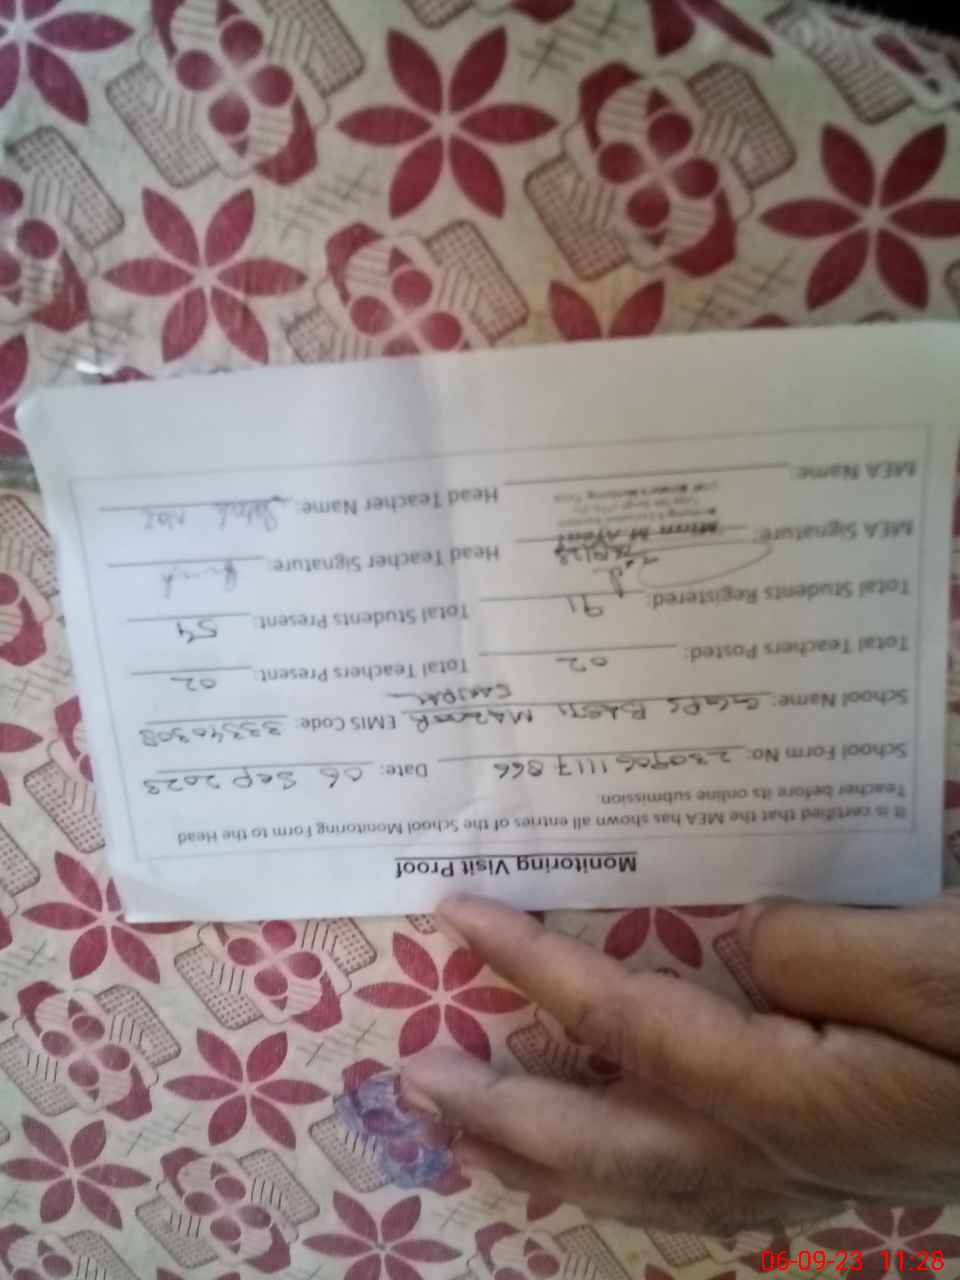 Monitoring Visit Proof
It is certified that the MEA has shown all entries of the School Monitoring Form to the Head
Teacher before its online submission.
School Form No: 2309061117866 Date: 06 Sep 2023
School Name: BASTI EMIS Code:
Total Teachers Posted: 02 Total Teachers Present: 02
Total Students Registered: 91 Total Students Present: 54
MEA Signature: Head Teacher Signature:
MEA Name: Head Teacher Name:
06-09-23 11:28